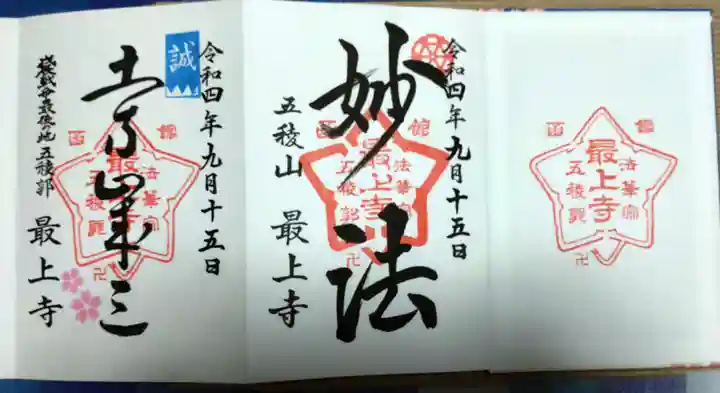 令和四年九月十五日
誠
土方歳三
最後の地 五稜郭 最上寺
函館
最上寺
法華宗
五稜郭
卍
令和四年九月十五日
妙法
五稜山 最上寺
函館
最上寺
法華宗
五稜郭
卍
函館
最上寺
法華宗
五稜郭
卍